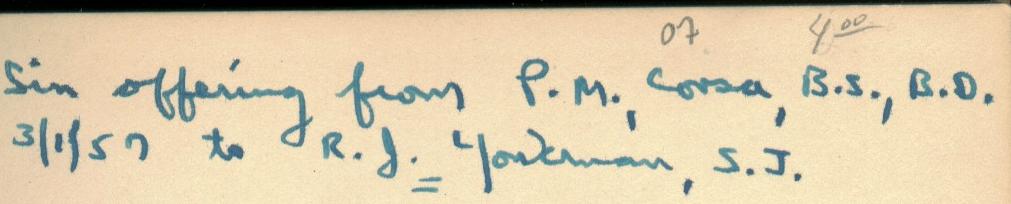 07 4.00
Sin offering from P.M., Corsa, B.S., B.D.
3/1/57 to R.J. S.J.